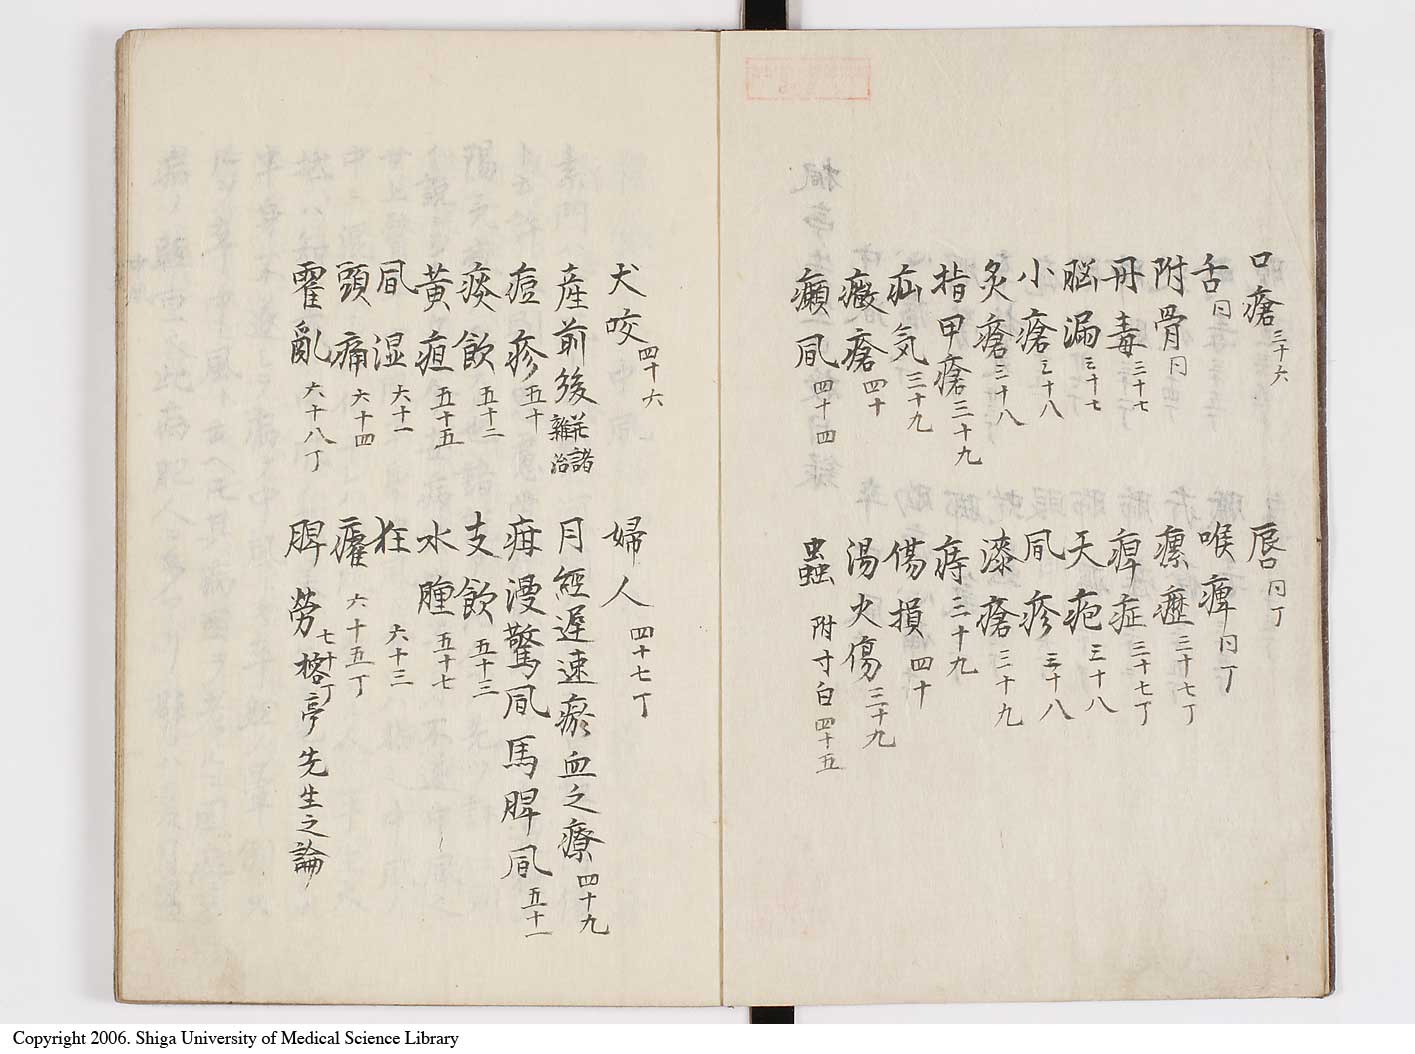 口瘡三十六　唇同丁
舌同　喉痺同丁
附骨同　瘰癧三十七丁
丹毒三十七　痺症三十七丁
脳漏三十七　天疱三十八
小瘡三十八　凮疹三十八
炙瘡三十八　漆瘡三十九
指甲瘡三十九　痔三十九
疝気三十九　傷損四十
癥瘡四十　湯火傷三十九
癩凮四十四　蟲附寸白四十五
犬咬四十六　婦人四十七丁
産前後並諸雑治　月經遅速瘀血之療四十九
痘疹五十　疳漫驚凮馬脾凮五十一
痰飲五十二　支飲五十三
黄疸五十五　水腫五十七
凮湿六十一　狂六十三
頭痛六十四　癯六十五丁
霍亂六十八丁　脾労七十丁 榕亭先生之論
Copyright 2006. Shiga University of Medical Science Library